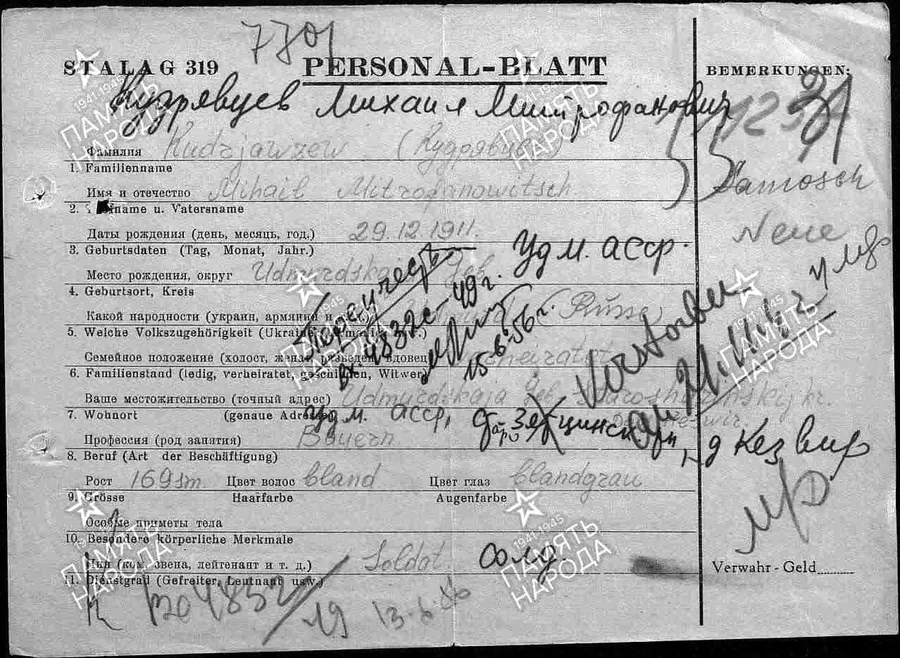 7701
STALAG 319 PERSONAL-BLATT BEMERKUNGEN:
Кудрявцев Михаил Митрофанович
Фамилия Kudrjawzew (Кудрявцев)
1. Familienname
Имя и отечество Mihail Mitrofanowitsch
2. name u. Vatersname
Zamosch
Даты рождения (день, месяць, год.) 29.12.1911.
Neue
3. Geburtsdaten (Tag, Monat, Jahr.)
Удм. АССР
Место рождения, округ Udmurdskaja Geb.
4. Geburtsort, Kreis
Какой народности (украин, армянин (Russe)
5. Welche Volkszugehörigkeit
Verstorben
Вх 4832с-49г.
15-6-56г.
Семейное положение (холост, женат, разведен, вдовец) verheiratet
6. Familienstand (ledig, verheiratet, geschieden, Witwer)
Ваше местожительство (точный адрес) Udmurdskaja Geb.
7. Wohnort (genaue Adresse)
удм. АССР,
Профессия (род занятия) Bauern
8. Beruf (Art der Beschäftigung)
Рост 169 sm. Цвет волос bland Цвет глаз blandgrau
9. Grösse Haarfarbe Augenfarbe
Особые приметы тела
10. Besondere körperliche Merkmale
Чин (ком. звена, лейтенант и т. д.) Soldat солд
11. Dienstgrad (Gefreiter, Leutnant usw.)
Verwahr-Geld
19 13-6-56
ПАМЯТЬ НАРОДА
1941-1945